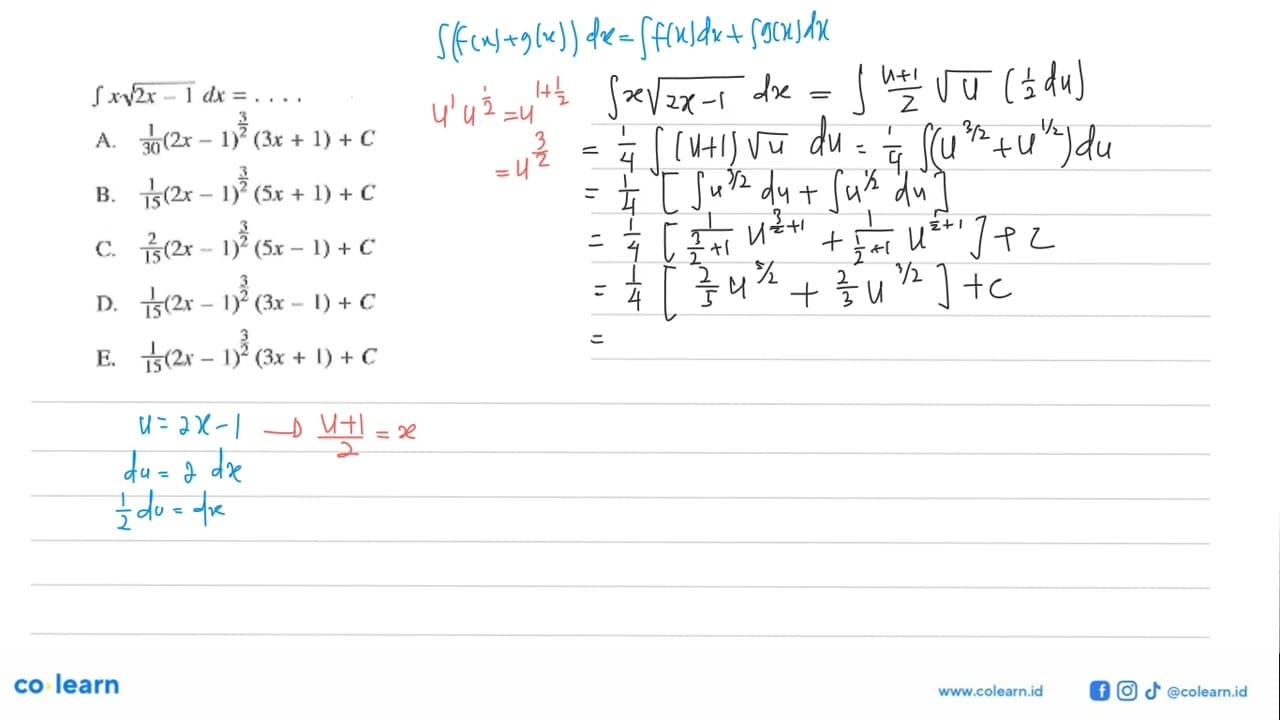 ∫(f(x)+g(x)) dx = ∫f(x)dx + ∫g(x)dx
∫ x√(2x − 1) dx = . . . .
A. 1/30 (2x − 1)^(3/2) (3x + 1) + C
B. 1/15 (2x − 1)^(3/2) (5x + 1) + C
C. 2/15 (2x − 1)^(3/2) (5x − 1) + C
D. 1/15 (2x − 1)^(3/2) (3x − 1) + C
E. 1/15 (2x − 1)^(3/2) (3x + 1) + C
u^1 u^(1/2) = u^(1+1/2)
= u^(3/2)
∫x√(2x-1) dx = ∫ (u+1)/2 √u (1/2 du)
= 1/4 ∫(u+1)√u du = 1/4 ∫(u^(3/2) + u^(1/2)) du
= 1/4 [∫u^(3/2) du + ∫u^(1/2) du]
= 1/4 [1/(3/2+1) u^(3/2+1) + 1/(1/2+1) u^(1/2+1)] + C
= 1/4 [2/5 u^(5/2) + 2/3 u^(3/2)] + C
=
u = 2x-1 → (u+1)/2 = x
du = 2 dx
1/2 du = dx
co learn
www.colearn.id
@colearn.id